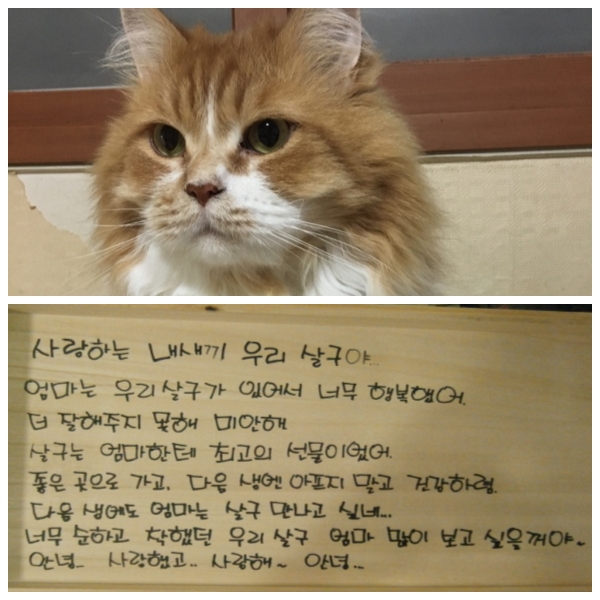 사랑하는 내새끼 우리 살구야...
엄마는 우리살구가 있어서 너무 행복했어.
더 잘해주지 못해 미안해
살구는 엄마한테 최고의 선물이었어.
좋은 곳으로 가고, 다음 생엔 아프지 말고 건강하렴.
다음 생에도 엄마는 살구 만나고 싶네...
너무 순하고 착했던 우리 살구 엄마 많이 보고 싶을꺼야~
안녕.. 사랑했고.. 사랑해~ 안녕...